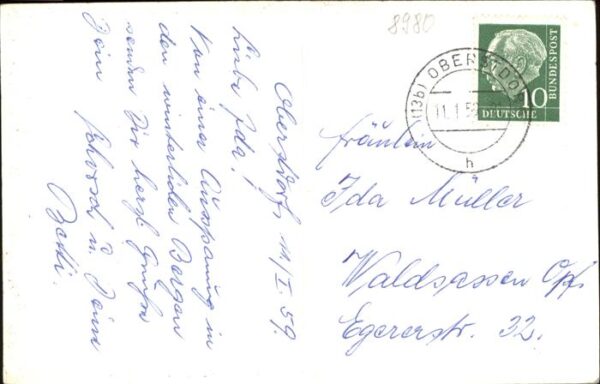 8980
(13b) OBERSTDORF
11.1.59
h
DEUTSCHE
BUNDESPOST
10
Oberstdorf, 11/I. 59.
Liebe Ida!
Von einer Ausspannung in
den winterlichen Bergen
senden Dir herzl. Grüße
Dein u. Deine
Betti.
Fräulein
Ida Müller
Waldsassen Opf.
Egererstr. 32.